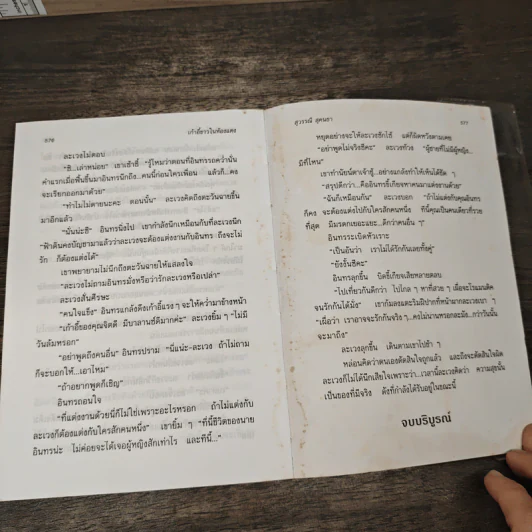 376
เก้าอี้ขาวในห้องแดง
ละเวงไม่ตอบ
"ซิ...เล่าหน่อย" เขาเซ้าซี้ "รู้ไหมว่าตอนที่อินทรรอคว่ำนั่น
คำแรกเมื่อฟื้นขึ้นมาอินทรก็นึกถึง...คนนี้ก่อนใครเพื่อน แล้วก็...คง
จะเรียกออกมาด้วย"
"ทำไมไม่ตายนะคะ ตอนนั้น" ละเวงคิดถึงตะวันฉายขึ้น
มาอีกแล้ว
"นั่นน่ะซี" อินทรนิ่งไป เขากำลังนึกเหมือนกับที่ละเวงนึก
"ฟ้าดินคงบัญชามาแล้วว่าละเวงจะต้องแต่งงานกับอินทร ถึงจะไม่
รัก ก็ต้องแต่งได้"
เขาพยายามไม่นึกถึงตะวันฉายให้แสลงใจ
"ละเวงไม่ถามอินทรมั่งหรือว่ารักละเวงหรือเปล่า"
ละเวงสั่นศีรษะ
"คนใจแข็ง" อินทรแกล้งดึงเก้าอี้แรง ๆ จะให้คว่ำมาข้างหน้า
"เก้าอี้ของคุณจิตติ มีบาลานซ์ดีมากค่ะ" ละเวงยิ้ม ๆ "ไม่มี
วันล้มหรอก"
"อย่าพูดถึงคนอื่น" อินทรปราม "นี่แน่ะ-ละเวง ถ้าไม่ถาม
ก็จะบอกให้...เอาไหม"
"ถ้าอยากพูดก็เชิญ"
อินทรถอนใจ
"ที่แต่งงานด้วยนี่ก็ไม่ใช่เพราะอะไรหรอก ถ้าไม่แต่งกับ
ละเวงก็ต้องแต่งกับใครสักคนหนึ่ง" เขายิ้ม ๆ "ที่นี้ชีวิตของนาย
อินทรน่ะ ไม่ค่อยจะได้เจอผู้หญิงสักเท่าไร และทีนี้..."
สุวรรณี สุคนธา
377
หยุดอย่างจะให้ละเวงซักไซ้ แต่ก็ผิดหวังตามเคย
"อย่าพูดไม่จริงซีคะ" ละเวงท้วง "ผู้ชายที่ไม่มีผู้หญิง..
มีที่ไหน"
เขาทำนัยน์ตาเจ้าชู้..อย่างแกล้งทำให้เห็นได้ชัด ๆ
"สรุปดีกว่า...คืออินทรขี้เกียจหาคนมาแต่งงานด้วย"
"ฉันก็เหมือนกัน" ละเวงบอก "ถ้าไม่แต่งกับคุณอินทร
ก็คง จะต้องแต่งไปกับใครสักคนหนึ่ง ที่นี้คุณเป็นคนเดียวที่รวย
ที่สุด มีมรดกเยอะแยะ...ดีกว่าคนอื่น ๆ"
อินทรระเบิดหัวเราะ
"เป็นอันว่า เราไม่ได้รักกันเลยทั้งคู่"
"ยังงั้นซีคะ"
อินทรลุกขึ้น บิดขี้เกียจเสียหลายตลบ
"ไปเที่ยวกันดีกว่า ไปไกล ๆ หาที่สวย ๆ เผื่อจะโรแมนติค
จนรักกันได้มั่ง" เขาก้มลงแตะริมฝีปากที่หน้าผากละเวงเบา ๆ
"เผื่อว่า เราอาจจะรักกันจริง ๆ...คงไม่นานหรอกละมัง...กว่าวันนั้น
จะมาถึง"
ละเวงลุกขึ้น เดินตามเขาไปช้า ๆ
หล่อนคิดว่าตนเองตัดสินใจถูกแล้ว และถึงจะตัดสินใจผิด
ละเวงก็ไม่ได้นึกเสียใจเพราะว่า...เวลานี้ละเวงคิดว่า ความสุขนั้น
เป็นของที่มีจริง ดังที่กำลังได้รับอยู่ในขณะนี้
จบบริบูรณ์